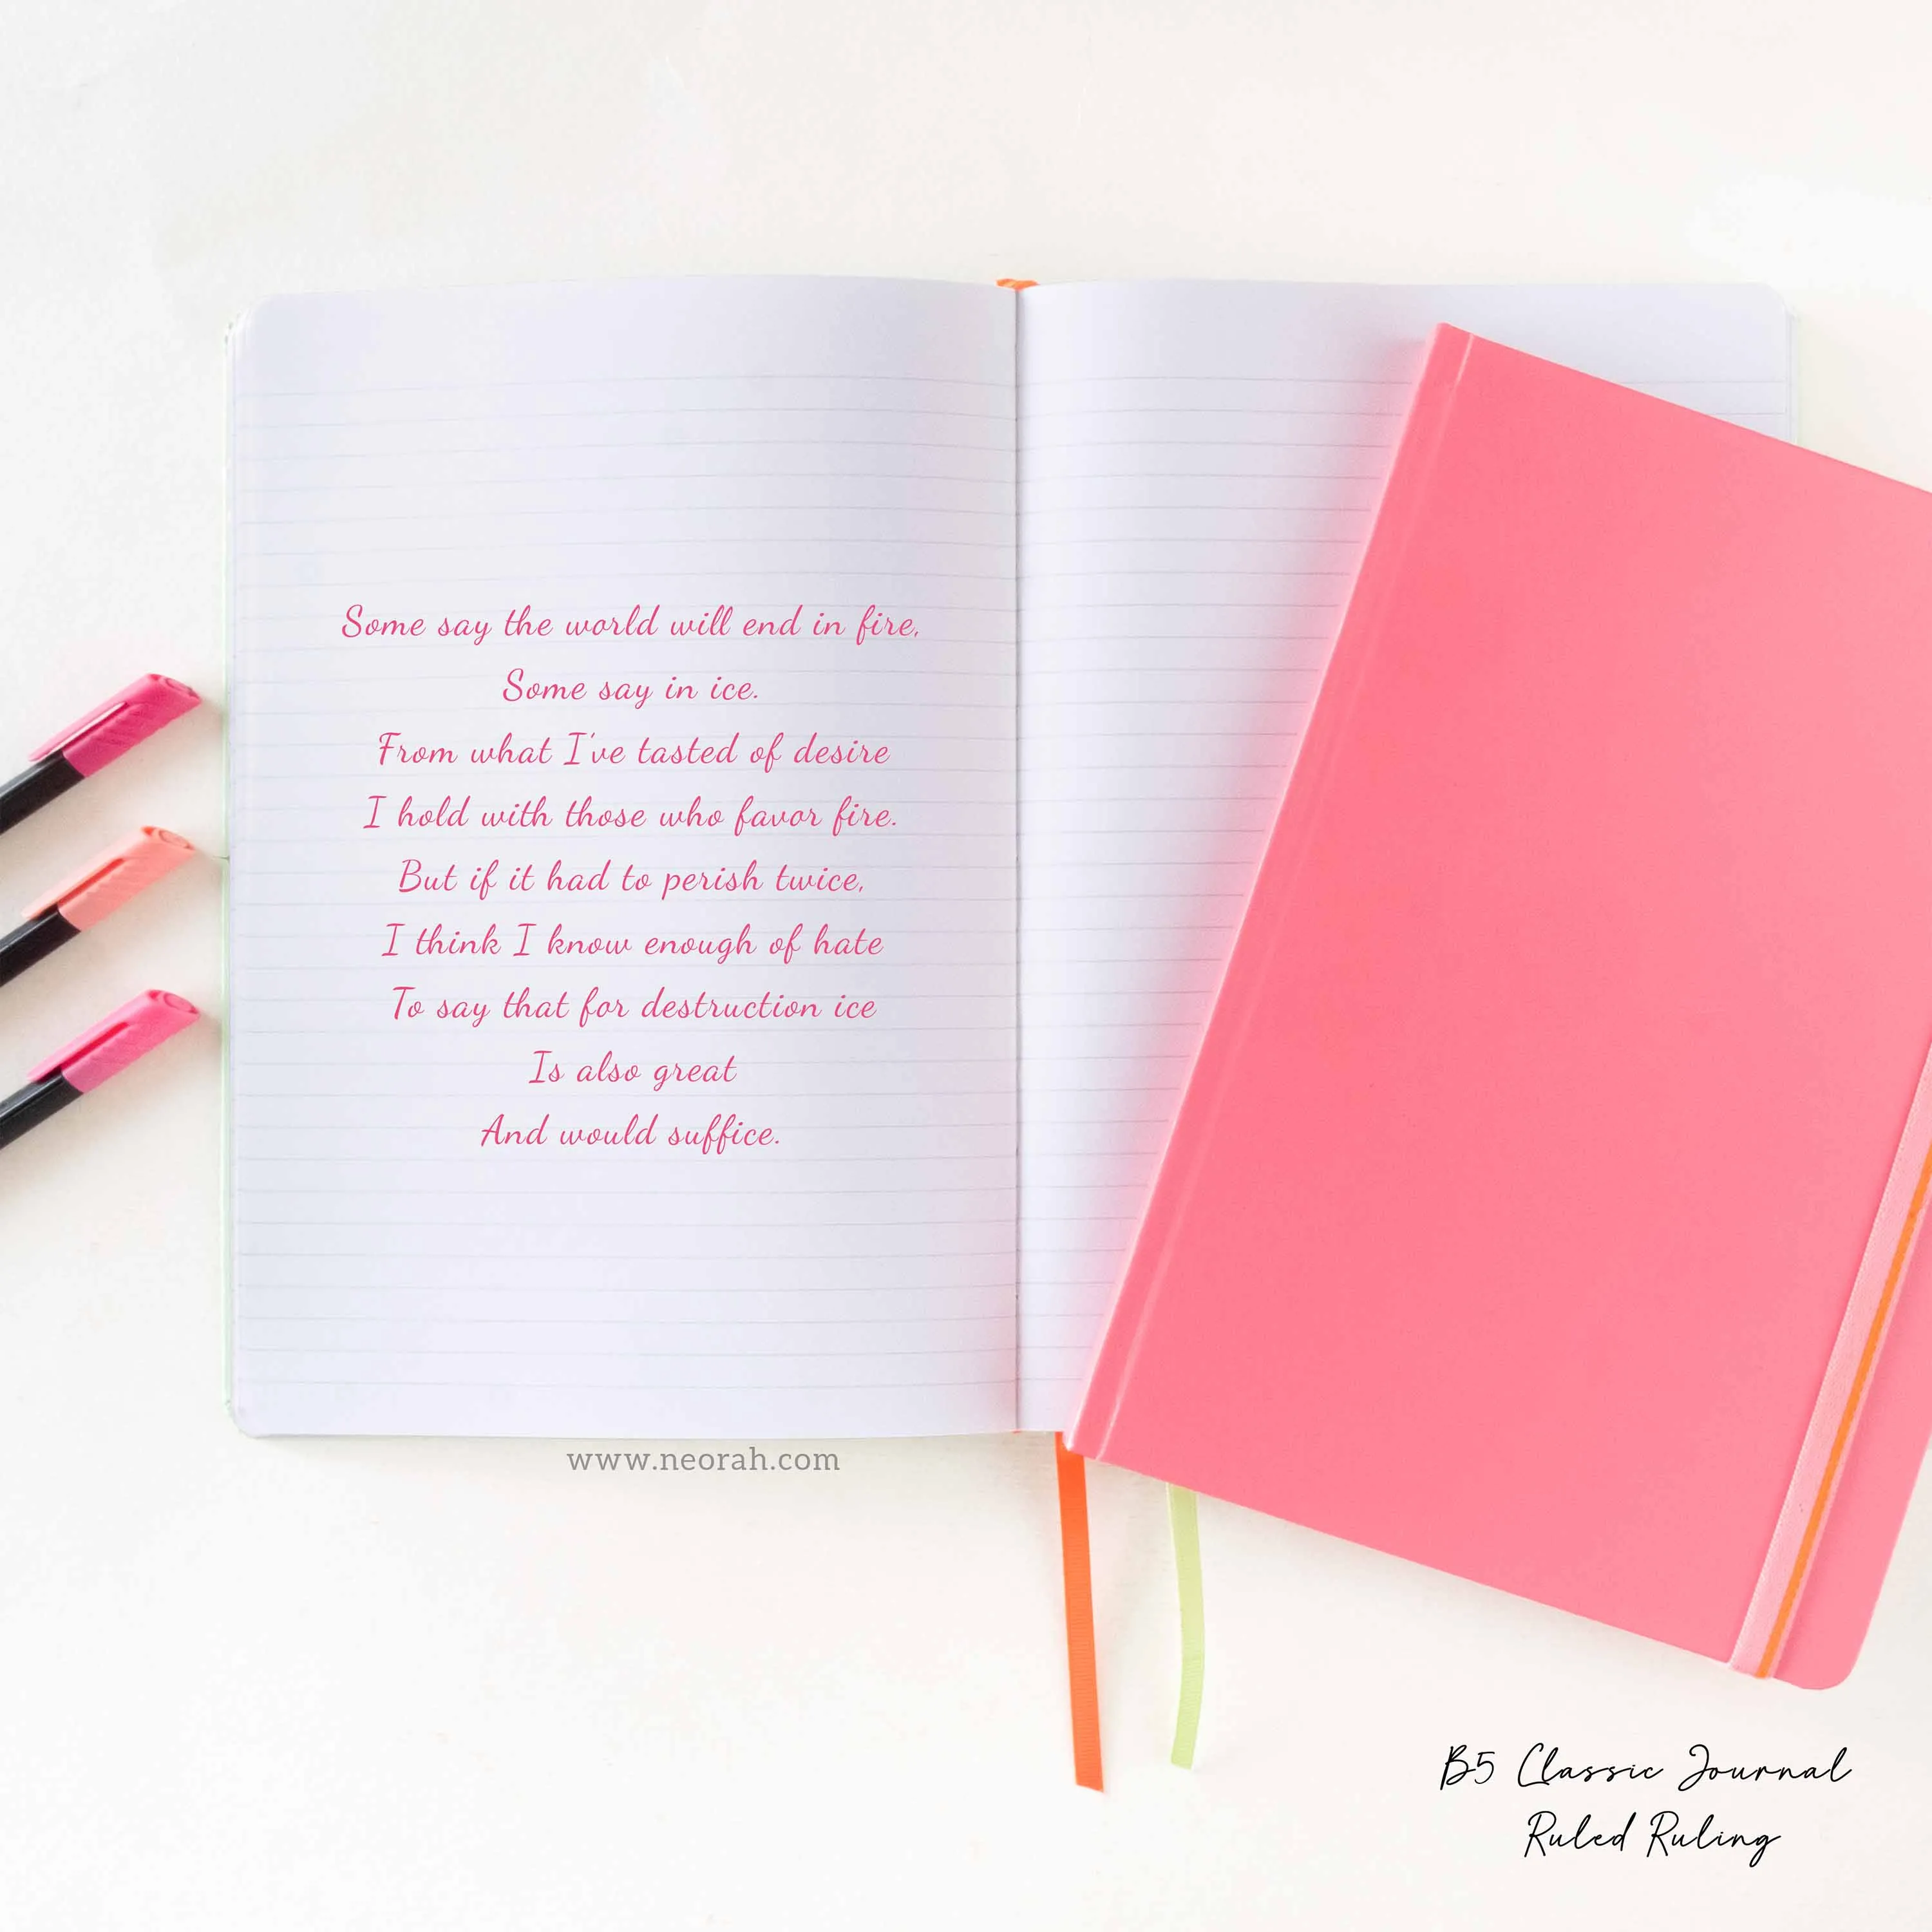 Some say the world will end in fire,
Some say in ice.
From what I've tasted of desire
I hold with those who favor fire.
But if it had to perish twice,
I think I know enough of hate
To say that for destruction ice
Is also great
And would suffice.
www.neorah.com
B5 Classic Journal
Ruled Ruling